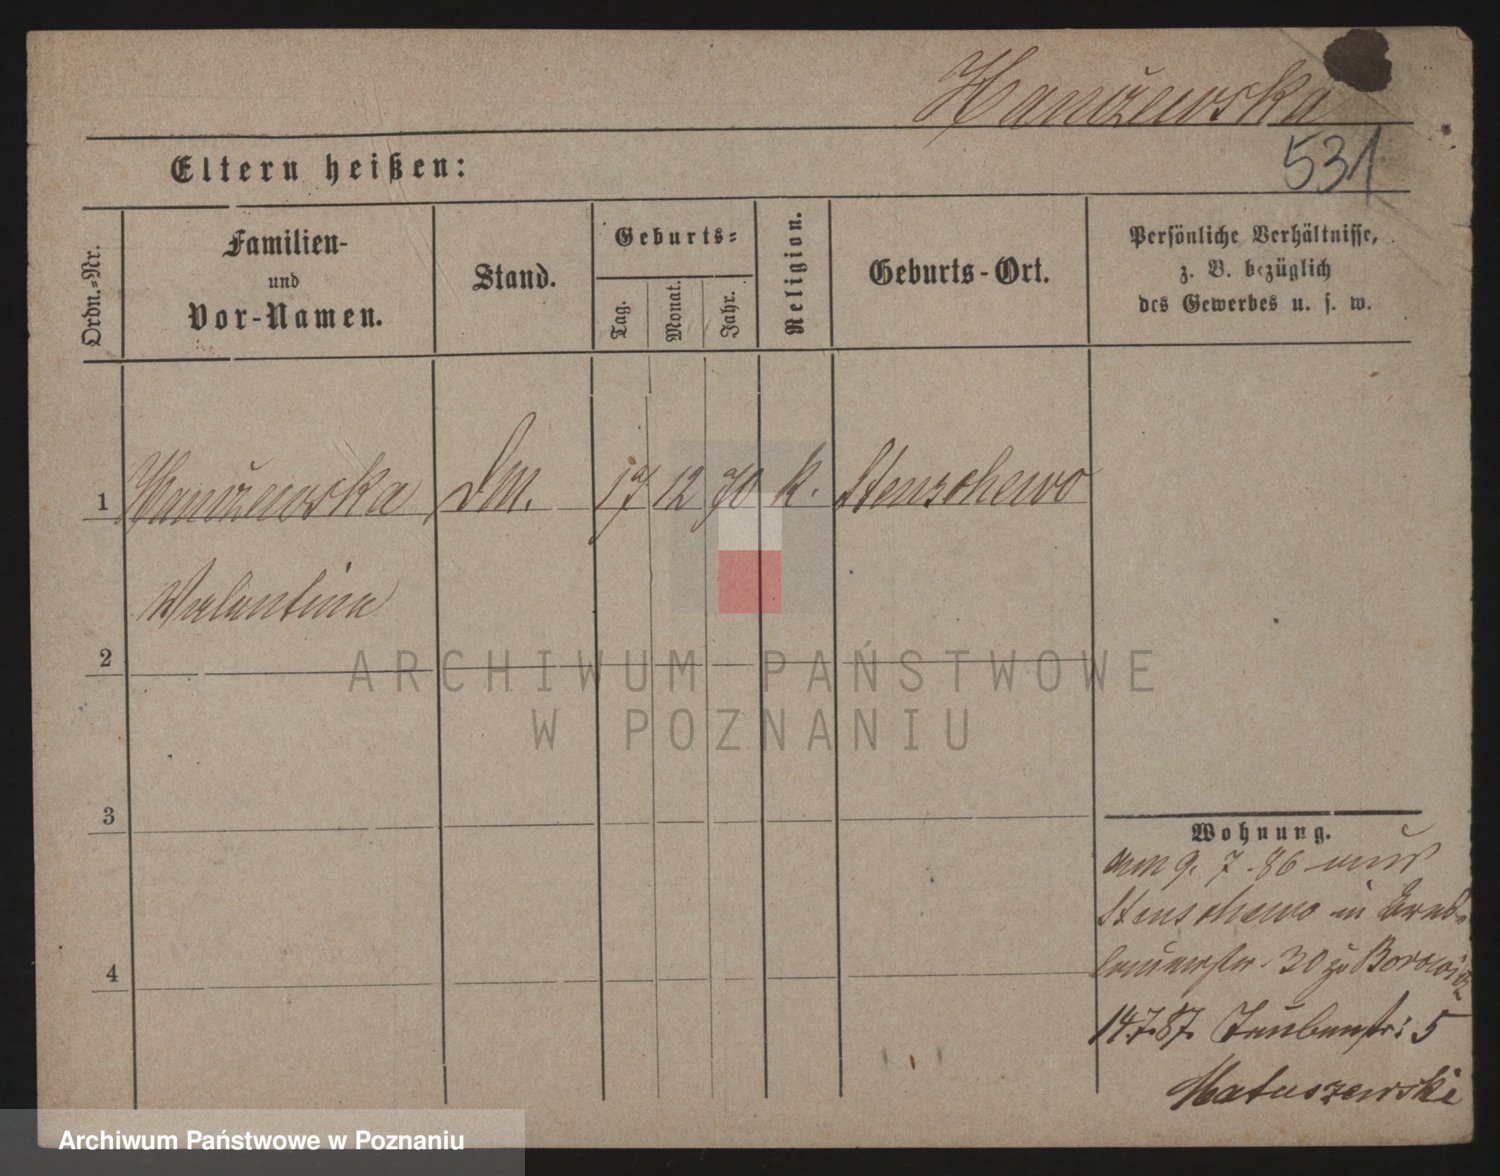 Hanczewska
531
Eltern heißen:
Ordn.-Nr.
Familien-
und
Vor-Namen.
Stand.
Geburts-
Tag.
Monat.
Jahr.
Religion.
Geburts-Ort.
Persönliche Verhältnisse,
z. B. bezüglich
des Gewerbes u. s. w.
1 Hanczewska Dm. 17 12 70 k. Stenschewo
Valentina
2
ARCHIWUM PAŃSTWOWE
W POZNANIU
3
4
Wohnung.
am 9. 7. 86 aus
Stenschewo in
30 zu
14.7.87. Taubenstr: 5
Matuszewski
Archiwum Państwowe w Poznaniu